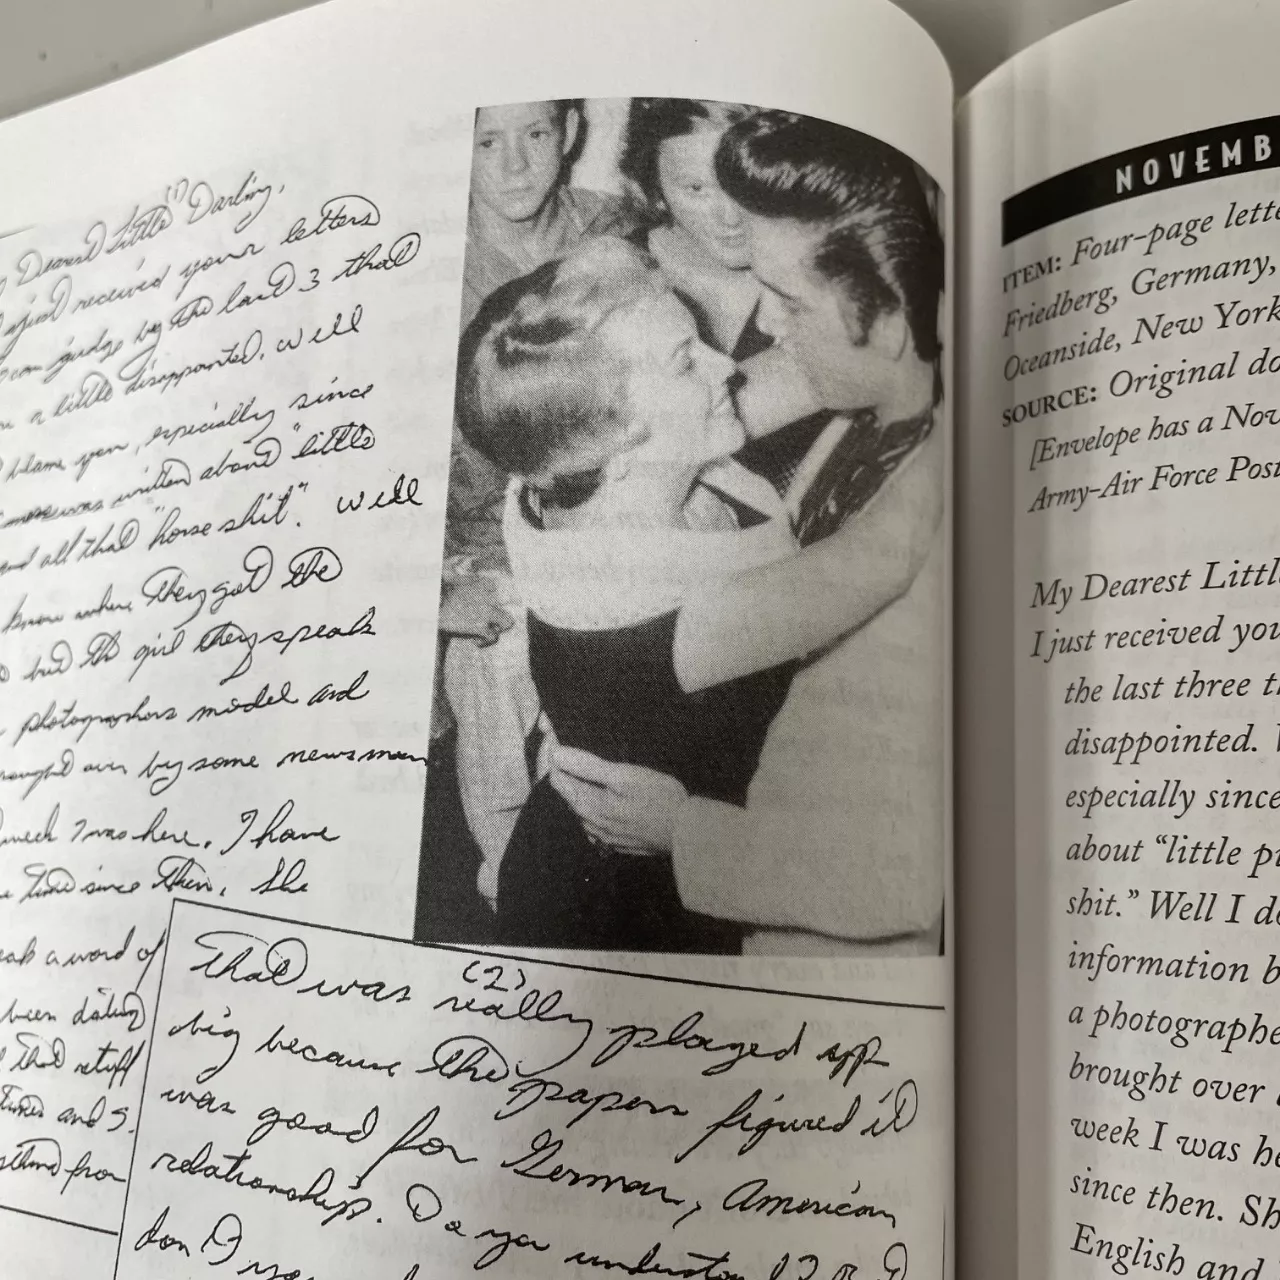 Dearest Little Darling,
(1)
just received your letters
can judge by the last 3 that
a little disappointed. well
blame you, especially since
was written about "little
and all that "horse shit". well
know where they got the
but the girl they speak
photographers model and
over by some newsman
week I was here. I have
time since then. She
speak a word of
been dating
that stuff
times and
from
(2)
That was really played up
big because the papers figured it
was good for German, American
relationship. Do you understand
don't you
NOVEMB
ITEM: Four-page lette
Friedberg, Germany,
Oceanside, New York
SOURCE: Original do
[Envelope has a Nov
Army-Air Force Post
My Dearest Little
I just received you
the last three th
disappointed. W
especially since
about "little pi
shit." Well I do
information b
a photographe
brought over
week I was he
since then. Sh
English and